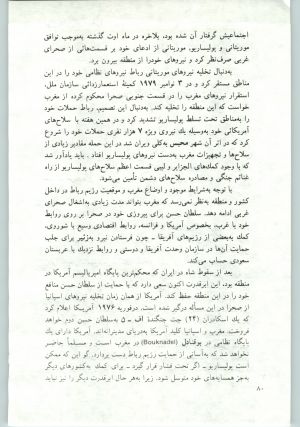 اجتماعیش گرفتار آن شده بود، بالاخره در ماه اوت گذشته به‌موجب توافق
موریتانی و پولیساریو، موریتانی از ادعای خود بر قسمت‌هائی از صحرای
غربی صرف‌نظر کرد و نیروهای خود را از منطقه بیرون برد.
به‌دنبال تخلیه نیروهای موریتانی رباط نیروهای نظامی خود را در این
مناطق مستقر کرد و در ۳ نوامبر ۱۹۷۹ کمیتهٔ استعمارزدائی سازمان ملل،
استقرار نیروهای مغرب را در قسمت جنوبی صحرا محکوم کرده از مغرب
خواست که این منطقه را تخلیه کند. به‌دنبال این تصمیم، رباط حملات خود
را به‌مناطق تحت تسلط پولیساریو تشدید کرد و در همین هفته با سلاح‌های
آمریکائی خود به‌وسیله یک نیروی ویژه ۷ هزار نفری حملات خود را شروع
کرد که در اثر آن شهر محبس به‌کلی ویران شد در این حمله مقادیر زیادی از
سلاح‌ها و تجهیزات مغرب به‌دست نیروهای پولیساریو افتاد. باید یادآور شد
که با وجود کمک‌های الجزایر و لیبی قسمت اعظم سلاح‌های پولیساریو از راه
غنائم جنگی و مصادره سلاح‌های دشمن تأمین می‌شود.
با توجه به‌شرایط موجود و اوضاع مغرب و موقعیت رژیم رباط در داخل
کشور و منطقه به‌نظر نمی‌رسد که مغرب بتواند مدت زیادی به‌اشغال صحرای
غربی ادامه دهد. سلطان حسن برای پیروزی خود در صحرا بر روی روابط
خود با غرب، بخصوص آمریکا و فرانسه، روابط اقتصادی وسیع با شوروی،
کمک به‌بعضی از رژیم‌های آفریقا ـ چون فرستادن نیرو به‌زئیر برای جلب
حمایت آن‌ها در سازمان وحدت آفریقا و دوستی و روابط نزدیک با عربستان
سعودی حساب می‌کند.
بعد از سقوط شاه در ایران که محکم‌ترین پایگاه امپریالیسم آمریکا در
منطقه بود، این ابرقدرت اکنون سعی دارد که با حمایت از سلطان حسن منافع
خود را در این منطقه حفظ کند. آمریکا از همان زمان تخلیه نیروهای اسپانیا
از صحرا در این مسأله درگیر شده است. در فوریه ۱۹۷۶ آمریکا اعلام کرد
که یک اسکادران (۲۴) جت جنگندهٔ اف ـ ۵ به‌سلطان حسن دوم خواهد
فروخت. مغرب و اسپانیا کلید آمریکا به‌دریای مدیترانه‌اند. آمریکا دارای یک
پایگاه نظامی در بوقنادل (Bouknadel) در مغرب است و مسلماً حاضر
نخواهد شد که به‌آسانی از حمایت رژیم رباط دست بردارد. گو این که ممکن
است پولیساریو ـ اگر تحت فشار قرار گیرد ـ برای کمک به‌کشورهای دیگر
به‌جز همسایه‌های خود متوسل شود. زیرا به‌هر حال ابرقدرت دیگر را نیز نباید
۸۰